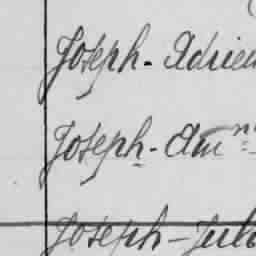 Joseph-Adrien
Joseph-Am
Joseph-Jul